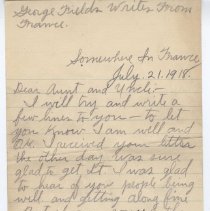 George Fields Writes From
France.
Somewhere In France
July. 21. 1918.
Dear Aunt and Uncle:-
I will try and write a
few lines to you - to let
you know I am well and
O.K. I received your letter
the other day. was sure
glad to get it. I was glad
to hear of you people being
well and getting along fine